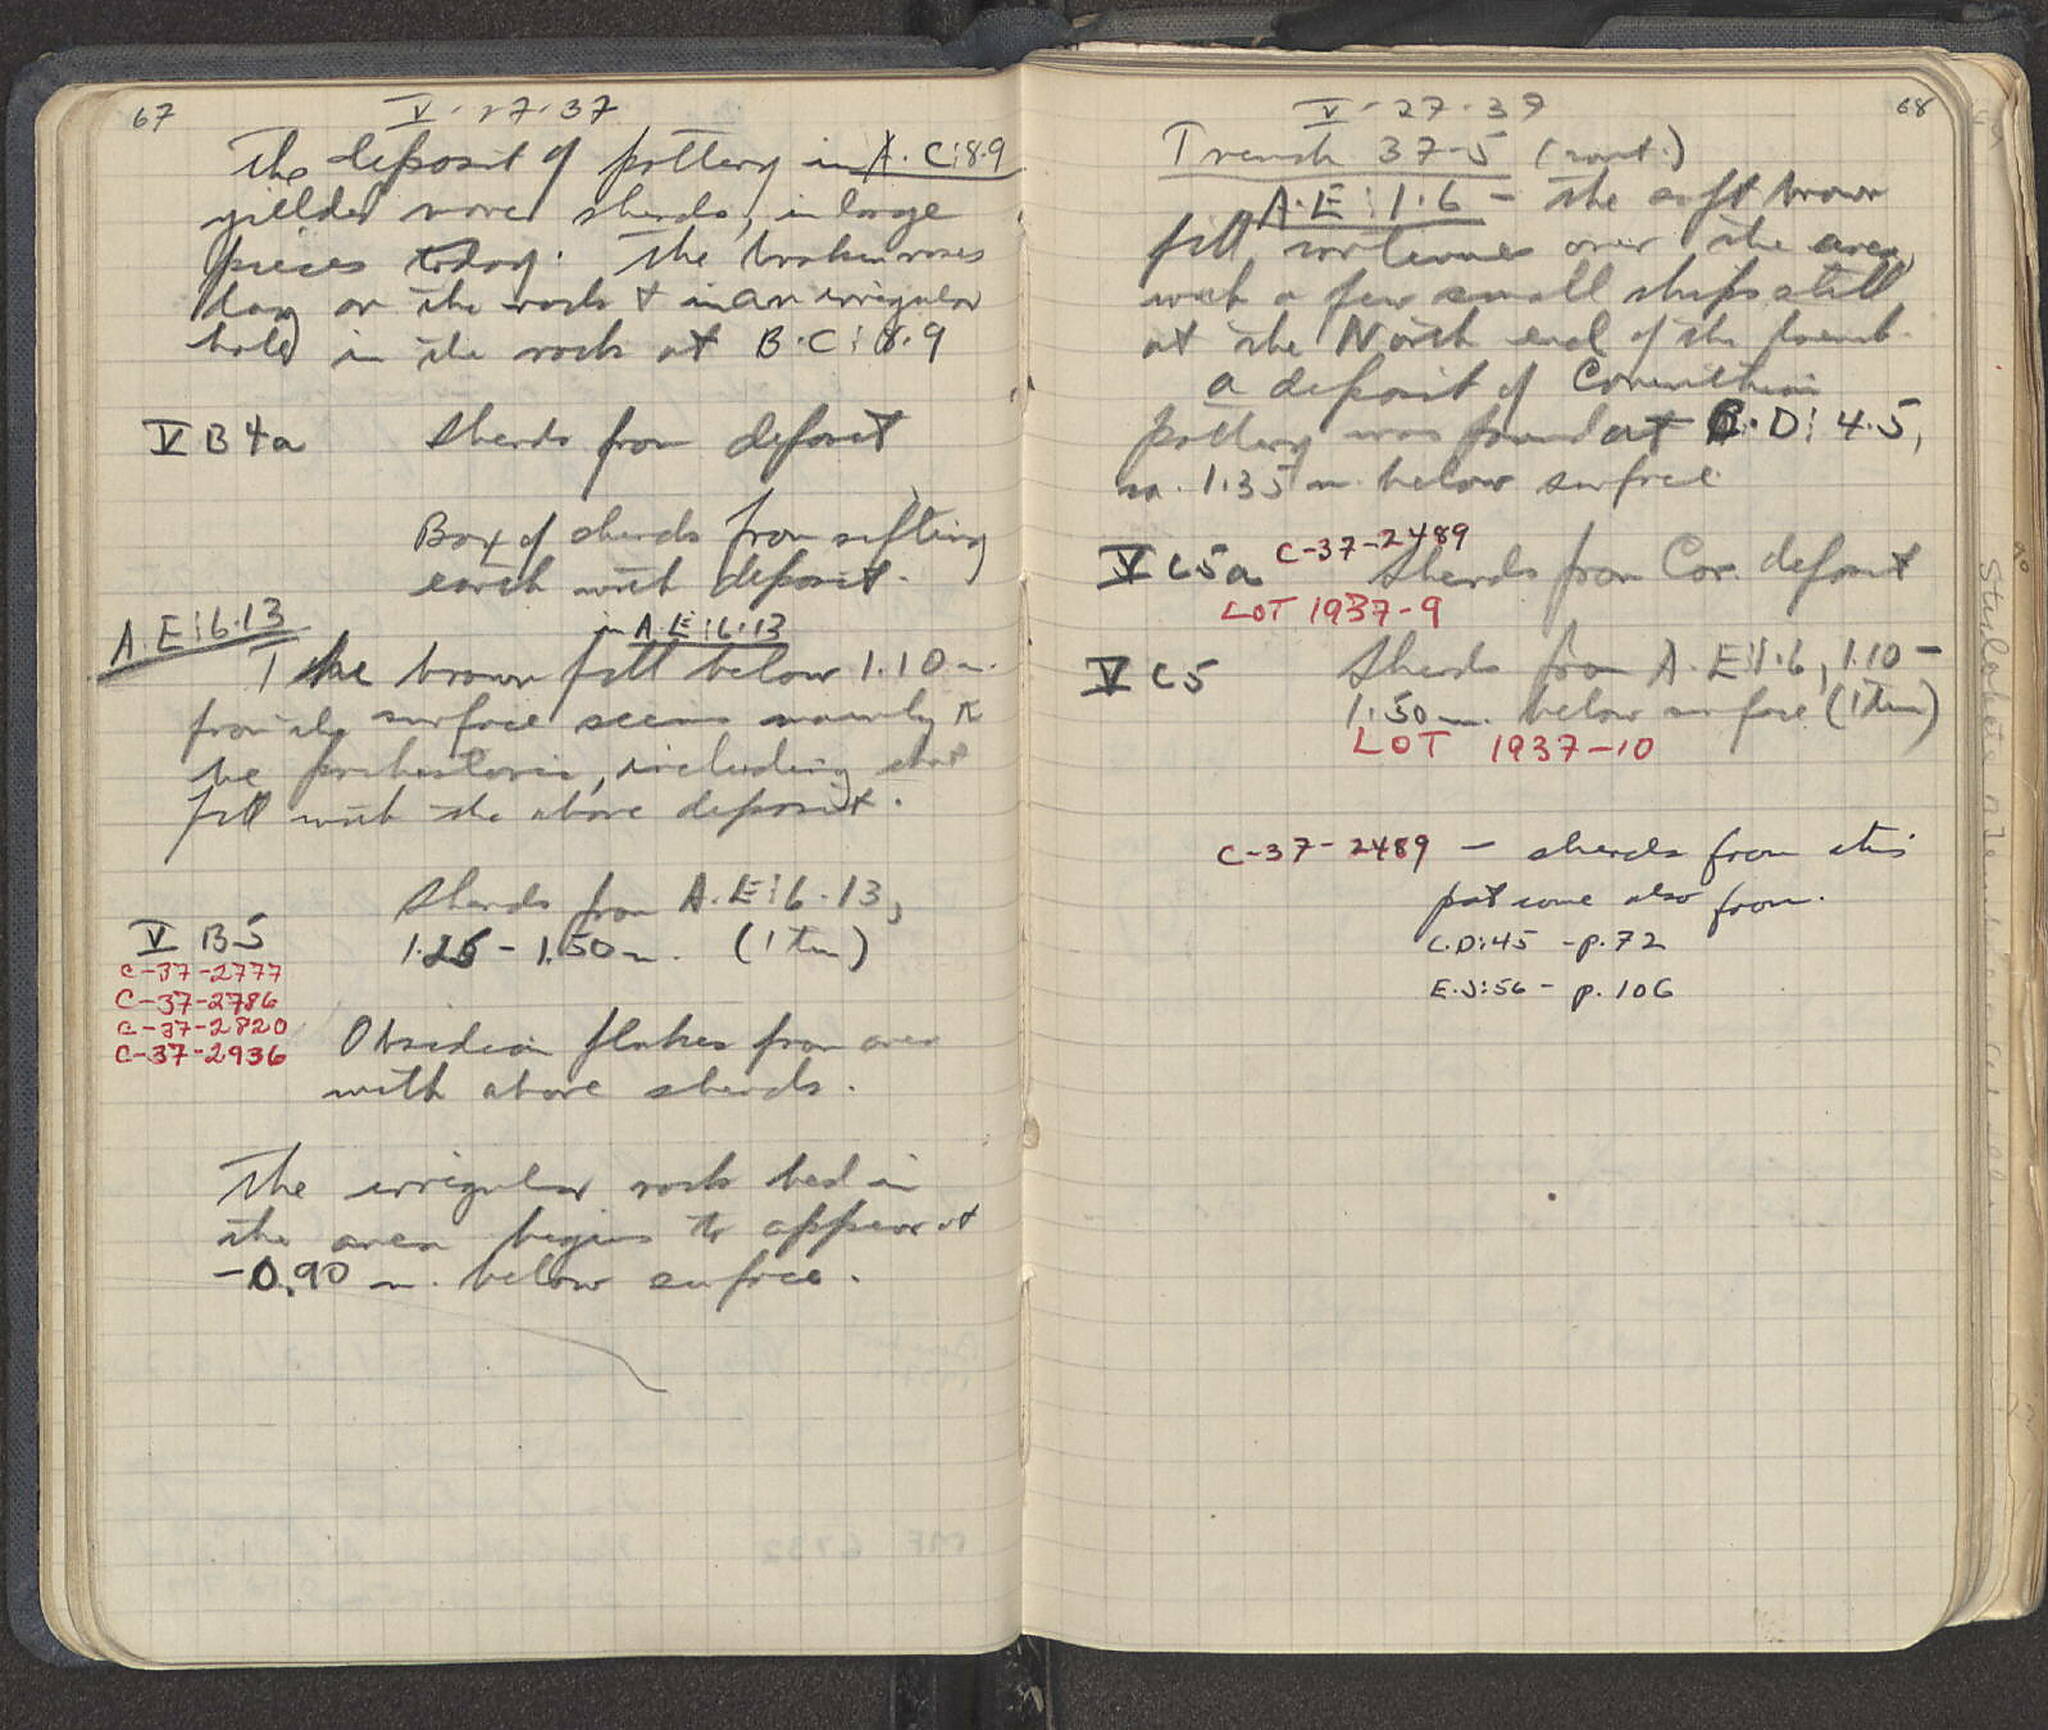 67
V · 27 · 37
The deposit of pottery in A. C:8.9
yielded more sherds, in large
pieces today. The broken vases
lay on the rock & in an irregular
hole in the rock at B.C:8.9
V B4a Sherds from deposit
Box of sherds from sifting
earth with deposit.
A.E:6.13
in A.E:6.13
The brown fill below 1.10 m.
from the surface seems mainly to
be prehistoric, including that
fill with the above deposit.
Sherds from A.E:6.13,
V B5 1.25 - 1.50 m. (1 tin)
C-37-2777
C-37-2786
C-37-2820
C-37-2936
Obsidian flakes from area
with above sherds.
The irregular rock bed in
the area begins to appear at
-0.90 m. below surface.
68
V · 27 · 37
Trench 37-5 (cont.)
A.E:1.6 - The soft brown
fill continues over the area,
with a few small chips still
at the North end of the trench.
A deposit of Corinthian
pottery was found at C.D:4.5,
ca. 1.35 m. below surface.
V C5a C-37-2489 Sherds from Cor. deposit
LOT 1937-9
V C5 Sherds from A.E:1.6, 1.10 -
1.50 m. below surface (1 tin)
LOT 1937-10
C-37-2489 - sherds from this
pot come also from.
C.D:45 - p.72
E.J:56 - p.106